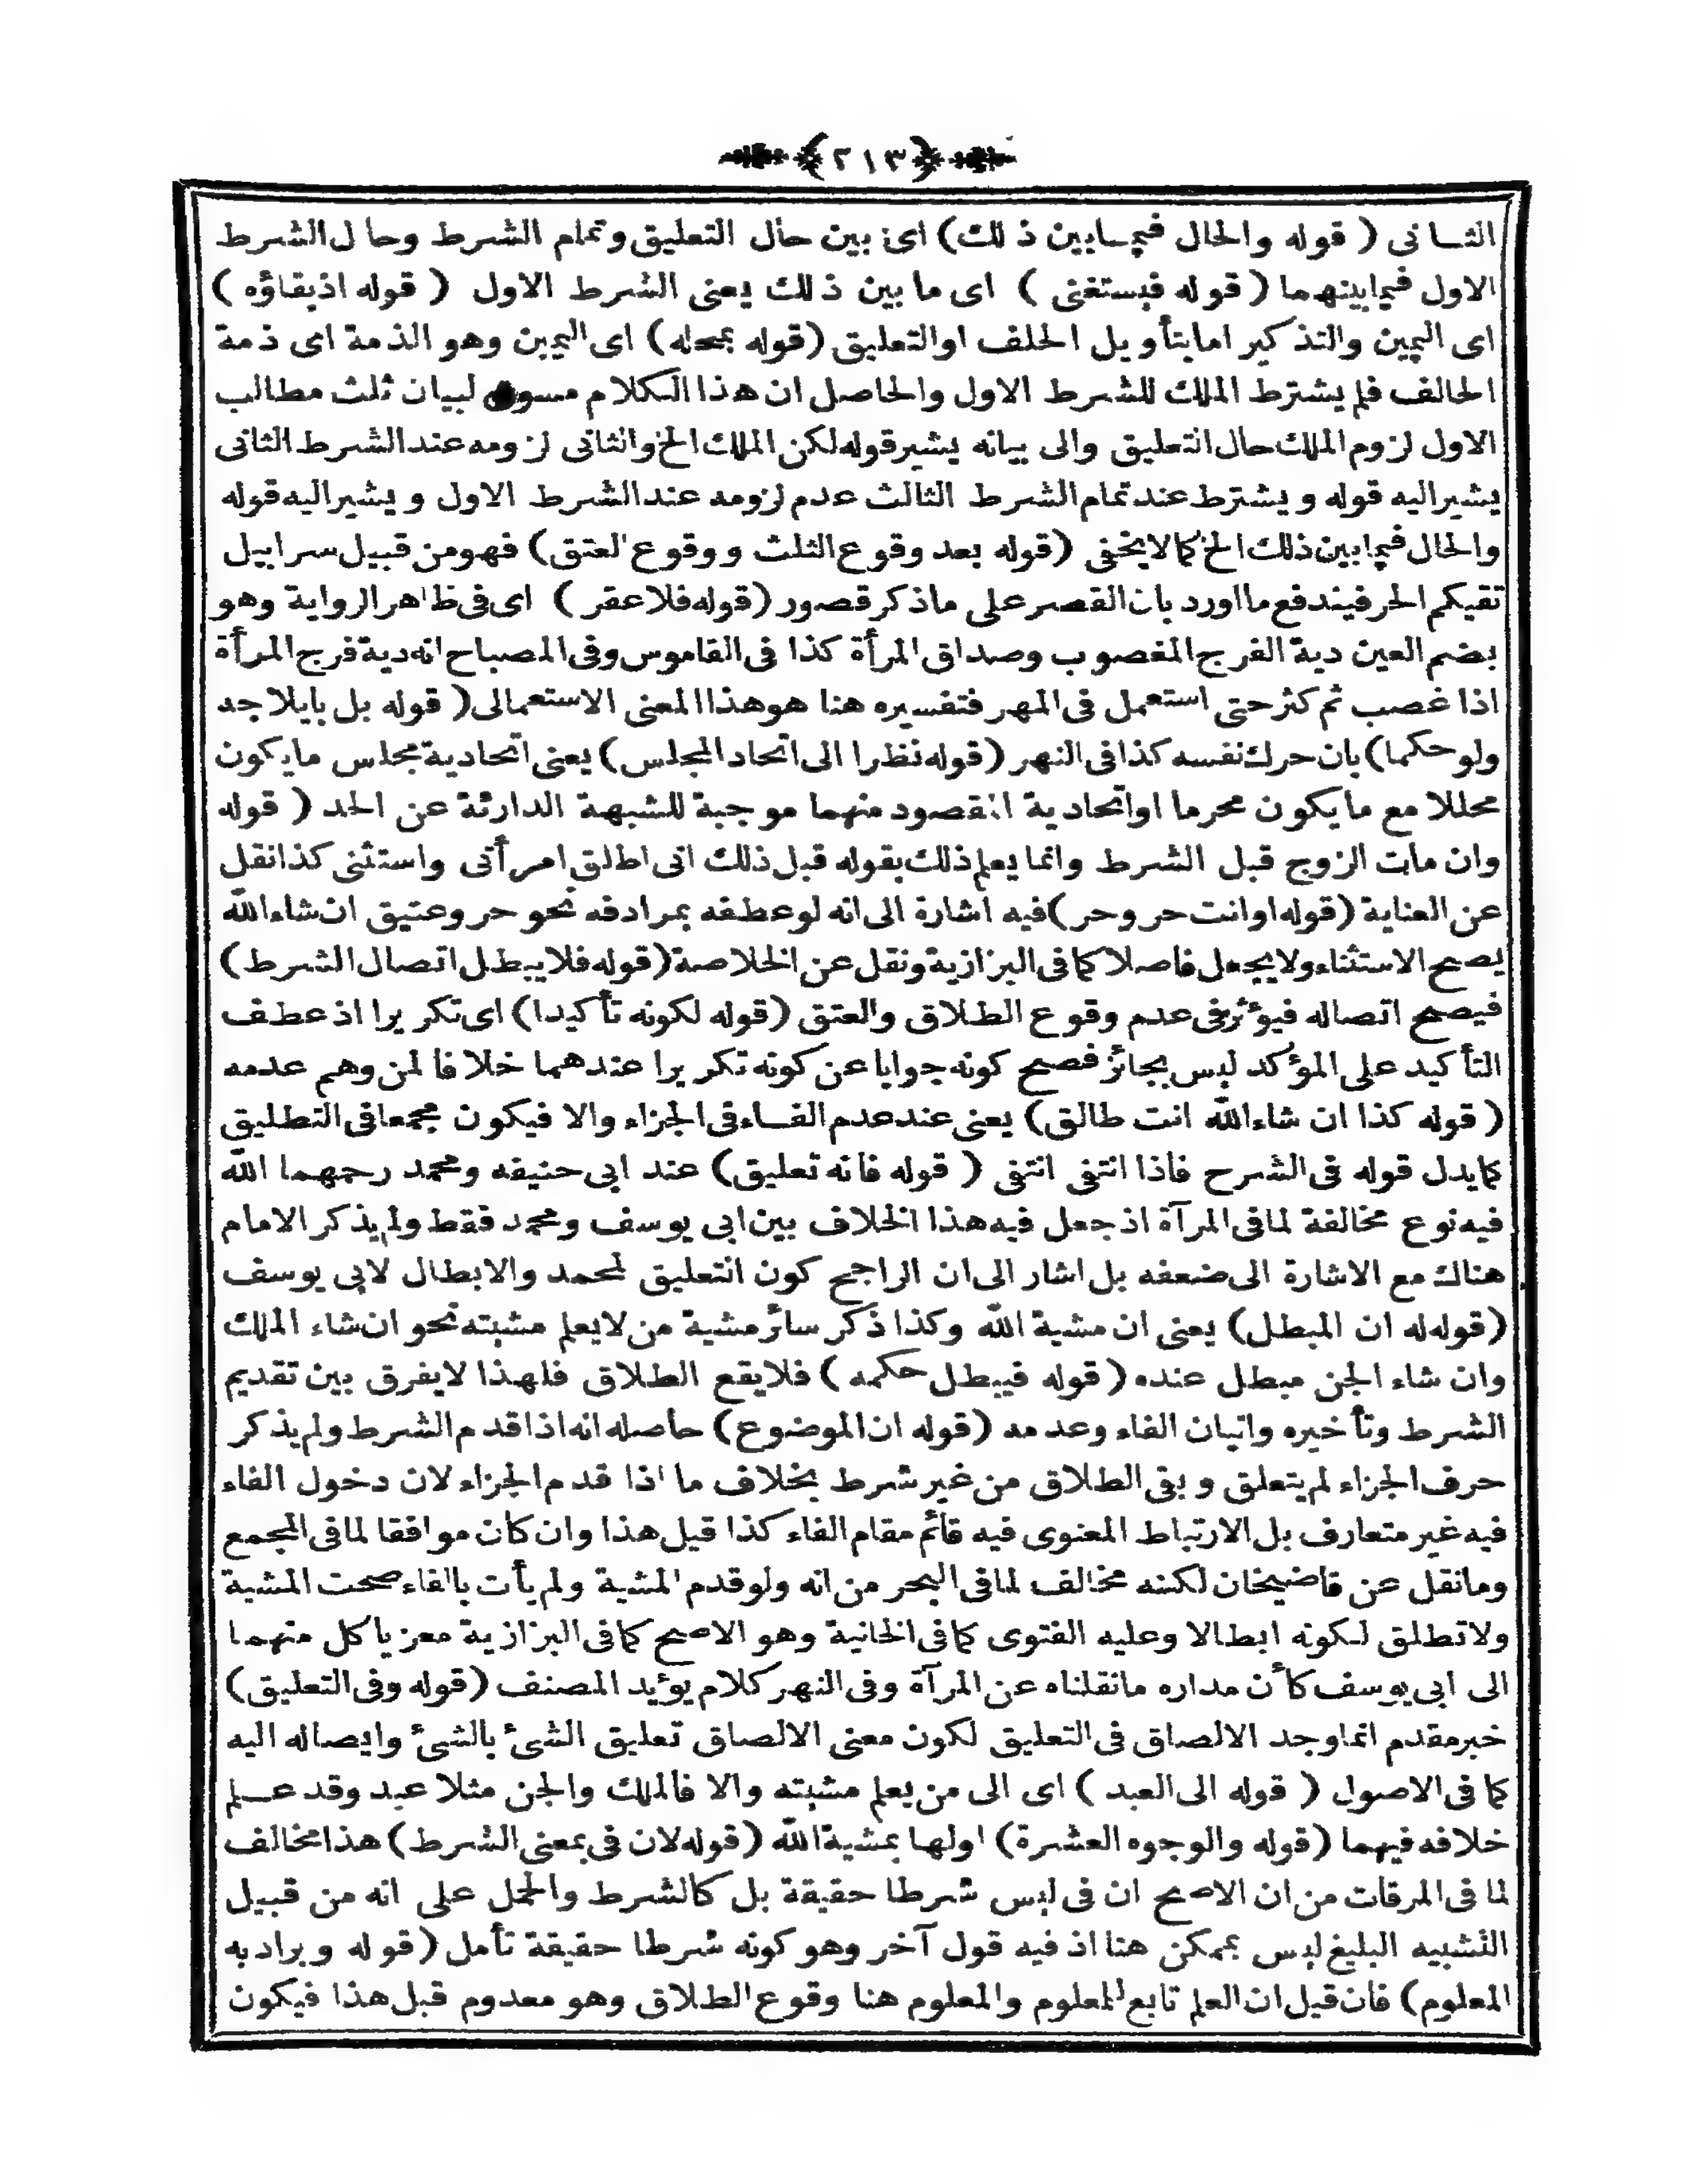 ﴿٢١٣﴾
الثانى ( قوله والحال فيمابين ذلك ) اى بين حال التعليق وتمام الشرط وحال الشرط
الاول فيمابينهما ( قوله فيستغنى ) اى ما بين ذلك يعنى الشرط الاول ( قوله اذبقاؤه )
اى اليمين والتذكير امابتأويل الحلف اوالتعليق (قوله بمحله) اى اليمين وهو الذمة اى ذمة
الحالف فلم يشترط الملك للشرط الاول والحاصل ان هذا الكلام لبيان ثلث مطالب
الاول لزوم الملك حال التعليق والى بيانه يشير قوله لكن الملك الخ والثانى لزومه عند الشرط الثانى
يشير اليه قوله ويشترط عند تمام الشرط الثالث عدم لزومه عند الشرط الاول ويشير اليه قوله
والحال فيمابين ذلك الخ كما لايخفى (قوله بعد وقوع الثلث ووقوع العتق) فهو من قبيل سرابيل
تقيكم الحر فيندفع مااورد بان القصر على ماذكر قصور (قوله فلاعقر ) اى فى ظاهر الرواية وهو
بضم العين دية الفرج المغصوب وصداق المرأة كذا فى القاموس وفى المصباح انه دية فرج المرأة
اذا غصب ثم كثر حتى استعمل فى المهر فتفسيره هنا هو هذا المعنى الاستعمالى ( قوله بل بايلاجد
ولو حكما) بان حرك نفسه كذا فى النهر (قوله نظرا الى اتحاد المجلس) يعنى اتحادية مجلس مايكون
محللا مع مايكون محرما اواتحادية المقصود منهما موجبة للشبهة الدارئة عن الحد ( قوله
وان مات الزوج قبل الشرط وانما يعلم ذلك بقوله قبل ذلك انى اطلق امرأتى واستثنى كذا نقل
عن العناية (قوله اوانت حر وحر) فيه اشارة الى انه لو عطفه بمرادفه نحو حر وعتيق ان شاء الله
يصح الاستثناء ولايجعل فاصلا كما فى البزازية ونقل عن الخلاصة (قوله فلايبطل اتصال الشرط)
فيصح اتصاله فيؤثر فى عدم وقوع الطلاق والعتق (قوله لكونه تأكيدا) اى تكريرا اذ عطف
التأكيد على المؤكد ليس بجائز فصح كونه جوابا عن كونه تكريرا عندهما خلافا لمن وهم عدمه
( قوله كذا ان شاء الله انت طالق) يعنى عند عدم الفاء فى الجزاء والا فيكون مجمعا فى التطليق
كمايدل قوله فى الشرح فاذا انتفى انتفى ( قوله فانه تعليق) عند ابى حنيفه ومحمد رحمهما الله
فيه نوع مخالفة لما فى المرآة اذ جعل فيه هذا الخلاف بين ابى يوسف ومحمد فقط ولم يذكر الامام
هناك مع الاشارة الى ضعفه بل اشار الى ان الراجح كون التعليق لمحمد والابطال لابى يوسف
(قوله له ان المبطل) يعنى ان مشية الله وكذا ذكر سائر مشية من لايعلم مشيته نحو ان شاء الملك
وان شاء الجن مبطل عنده ( قوله فيبطل حكمه ) فلايقع الطلاق فلهذا لايفرق بين تقديم
الشرط وتأخيره واتيان الفاء وعدمه (قوله ان الموضوع) حاصله انه اذا قدم الشرط ولم يذكر
حرف الجزاء لم يتعلق وبقى الطلاق من غير شرط بخلاف ما اذا قدم الجزاء لان دخول الفاء
فيه غير متعارف بل الارتباط المعنوى فيه قائم مقام الفاء كذا قيل هذا وان كان موافقا لما فى المجمع
ومانقل عن قاضيخان لكنه مخالف لما فى البحر من انه ولو قدم المشية ولم يأت بالفاء صحت المشية
ولاتطلق لكونه ابطالا وعليه الفتوى كما فى الخانية وهو الاصح كما فى البزازية معزيا كل منهما
الى ابى يوسف كأن مداره مانقلناه عن المرآة وفى النهر كلام يؤيد المصنف (قوله وفى التعليق)
خبر مقدم انما وجد الالصاق فى التعليق لكون معنى الالصاق تعليق الشئ بالشئ وايصاله اليه
كما فى الاصول ( قوله الى العبد ) اى الى من يعلم مشيته والا فالملك والجن مثلا عبد وقد علم
خلافه فيهما (قوله والوجوه العشرة) اولها بمشية الله (قوله لان فى بمعنى الشرط) هذا مخالف
لما فى المرقات من ان الاصح ان فى ليس شرطا حقيقة بل كالشرط والحمل على انه من قبيل
التشبيه البليغ ليس بممكن هنا اذ فيه قول آخر وهو كونه شرطا حقيقة تأمل (قوله ويراد به
المعلوم) فان قيل ان العلم تابع للمعلوم والمعلوم هنا وقوع الطلاق وهو معدوم قبل هذا فيكون